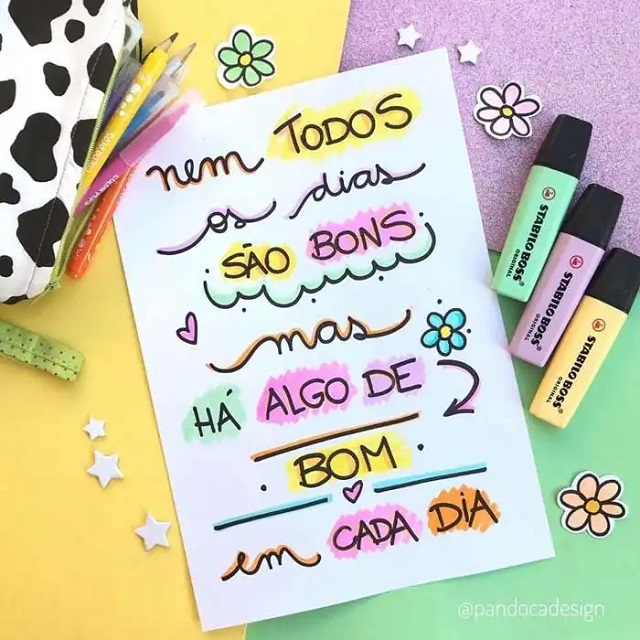 nem TODOS
os dias
SÃO BONS
mas
HÁ ALGO DE
BOM
em CADA DIA
STABILO BOSS
ORIGINAL
STABILO BOSS
ORIGINAL
STABILO BOSS
ORIGINAL
@pandocadesign